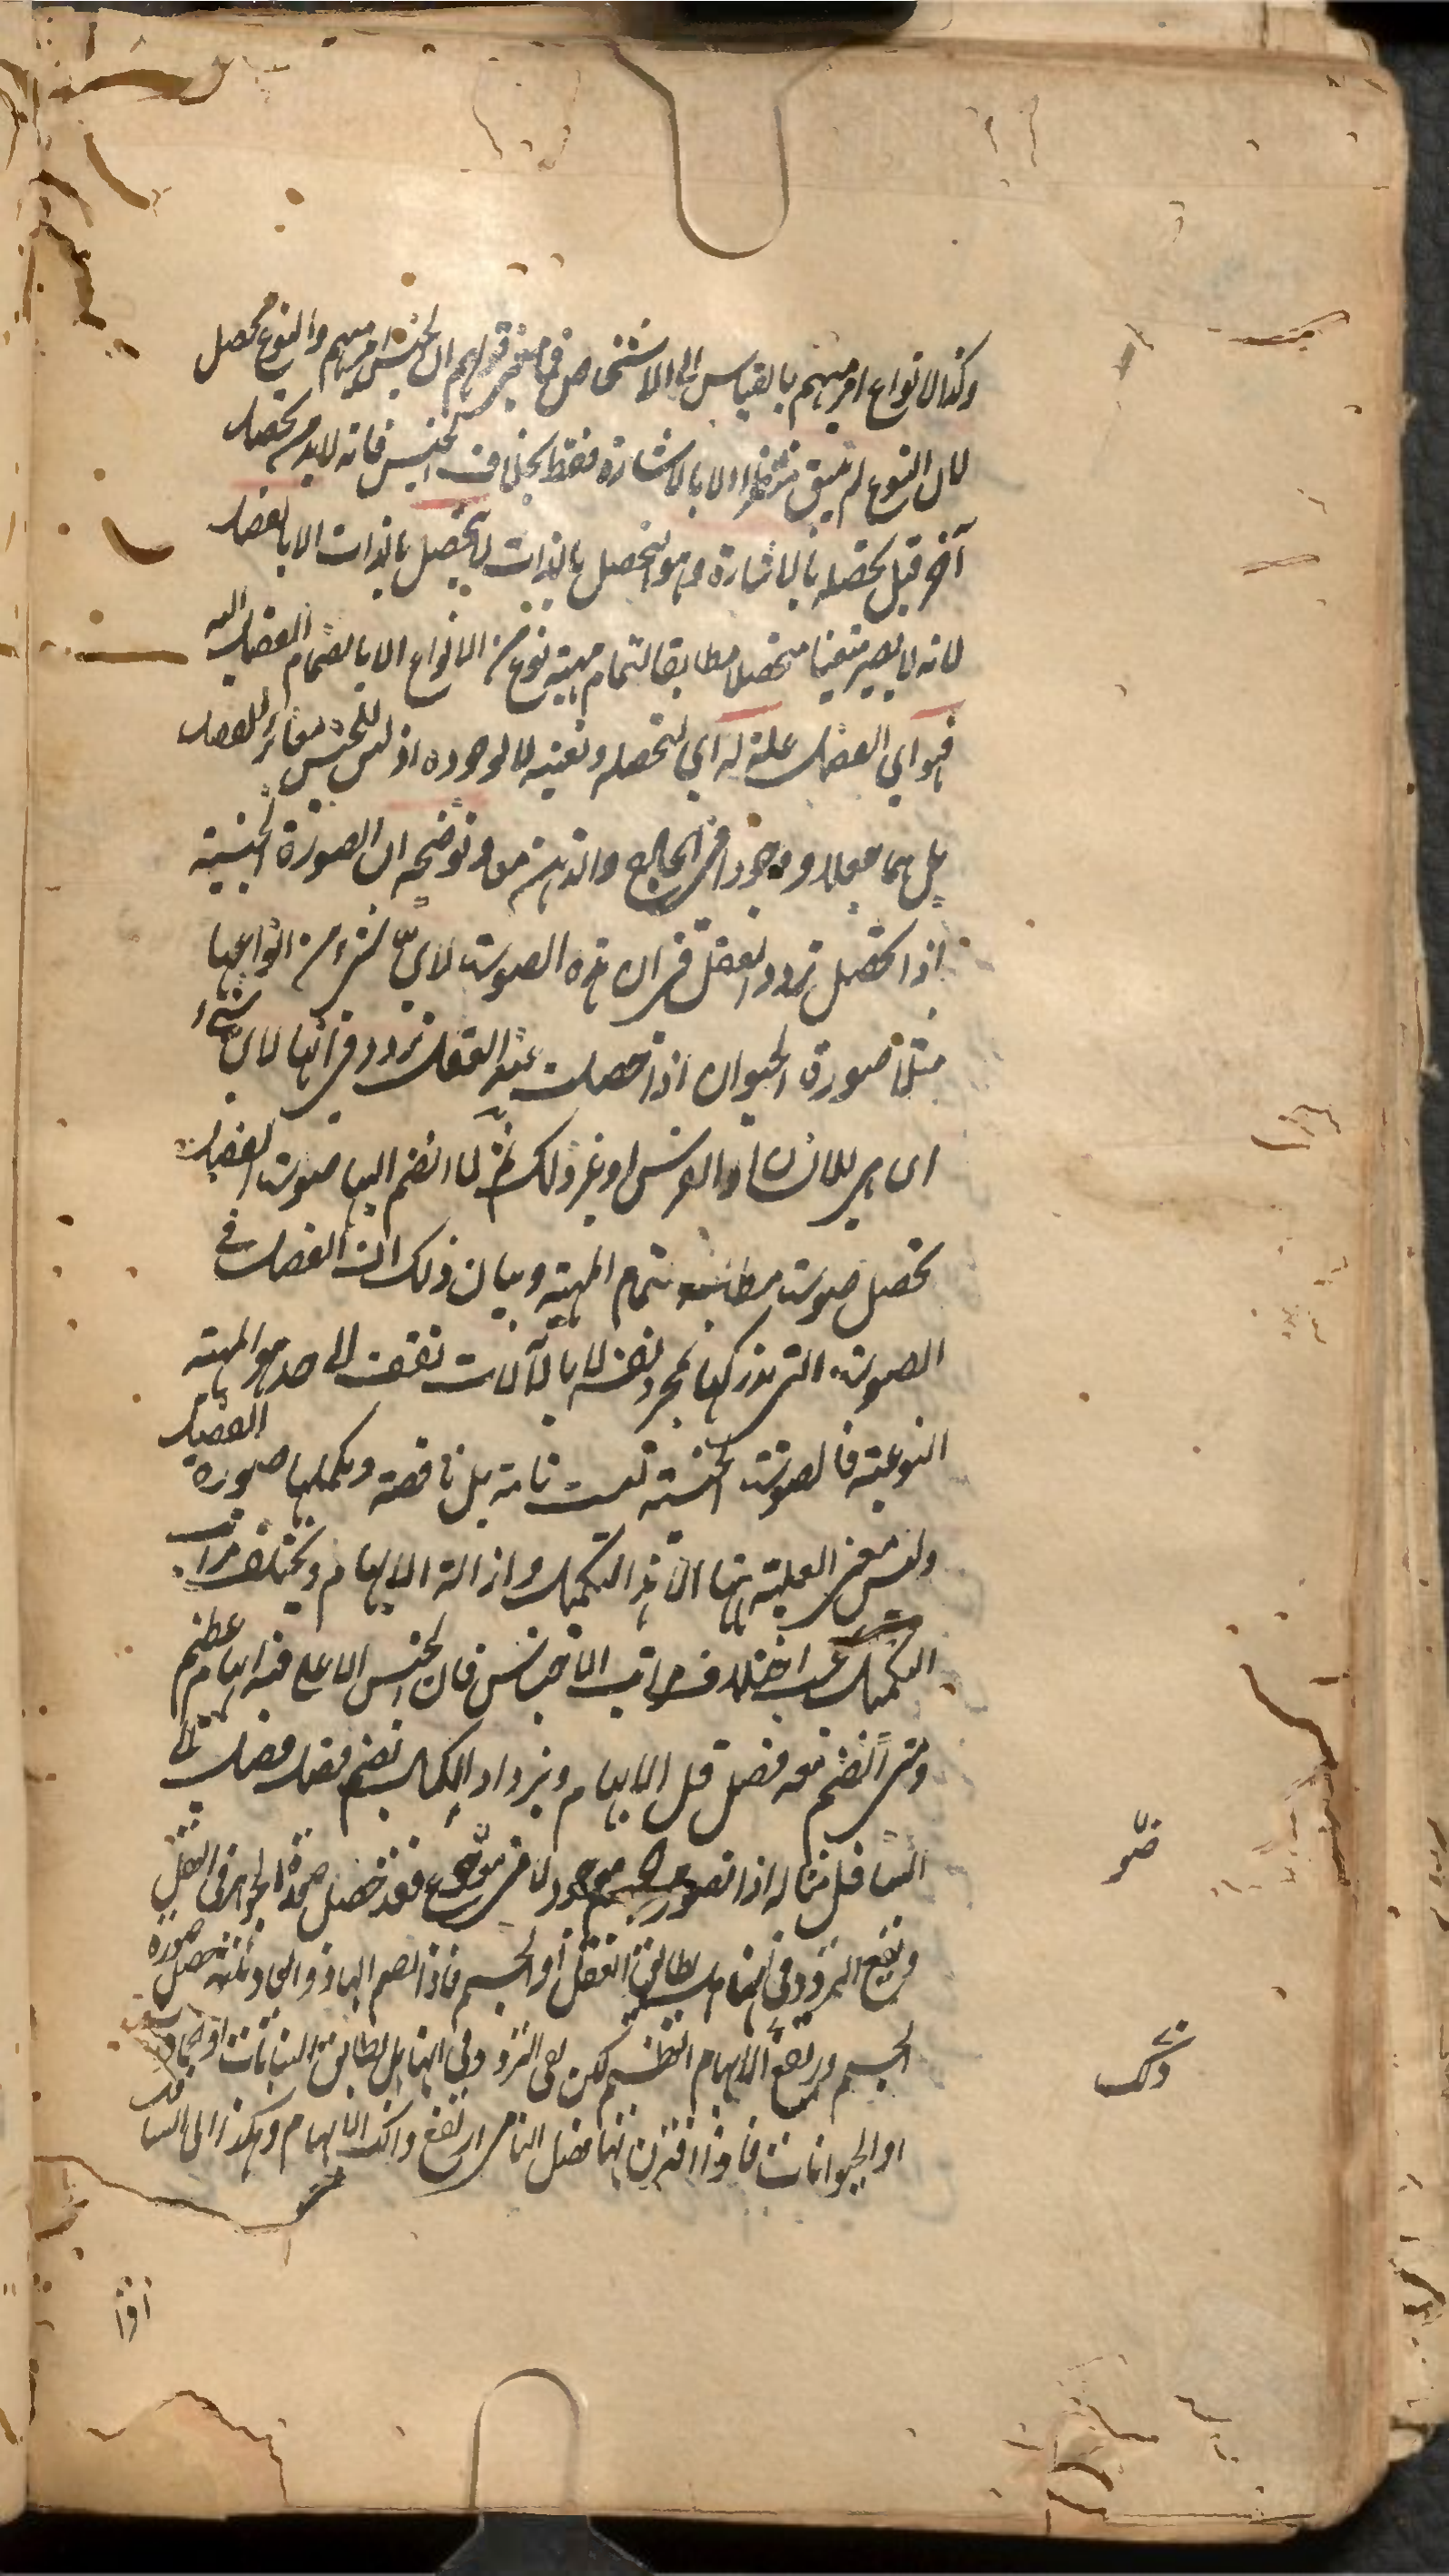 وكذا الانواع امر مبهم بالقياس الى الاشخاص فما معنى قولهم ان الجنس امر مبهم والنوع محصل
لان النوع لم يبق منتظرا الا بالاشارة فقط بخلاف الجنس فانه لابد من تحصل
آخر قبل تحصله بالاشارة وهو التحصل بالذات لا يتحصل بالذات الا بالفصل
لانه لا يصير متعينا متحصلا مطابقا لتمام مهية نوع من الانواع الا بانضمام الفصل اليه
فهو اي الفصل علة له اي لتحصله وتعينه لا لوجوده اذ ليس للجنس مغائر للفصل
بل هما معلا وموجودا في الخارج والذهن معا وتوضيحه ان الصورة الجنسية
اذا تحصل تردد العقل في ان هذه الصورت لاي شيء من انواعها
مثلا صورة الحيوان اذا حصلت عند العقل تردد في انها لاي شيء
اى هى للانسان او الفرس او غير ذلك ثم لما انضم اليها صورت الفصل
تحصل صورت مطابقه تمام المهية وبيان ذلك ان الفصل في
الصورت التى يدركها بمجرد نفسه لا بالآلات تقف الى حد هو المهية
النوعية فالصورت الجنسية ليست تامة بل ناقصة ويكملها صورة الفصل
وليس معنى العلية ههنا الا هذا التكميل وازالة الابهام ويختلف مراتب
التكميل بحسب اختلاف مراتب الاجناس فان الجنس الاعلى فيه ابهام عظيم
ومتى انضم معه فصل قل الابهام ويزداد الكمال بضم فصل فصل الى
السافل مثاله اذا تصور موجود لا في موضوع فقد حصل صورة الجوهر فى العقل
ويقع التردد في انها هل يطابق العقل او الجسم فاذا انضم اليها ذو ابعاد ثلثة حصل صورة
الجسم وارتفع الابهام العظيم لكن بقى التردد في انها هل يطابق النباتات او الجمادات
او الحيوانات فاذا اقترن بها فصل النامى ارتفع ذلك الابهام وهكذا الى السافل
ذلك
اذا